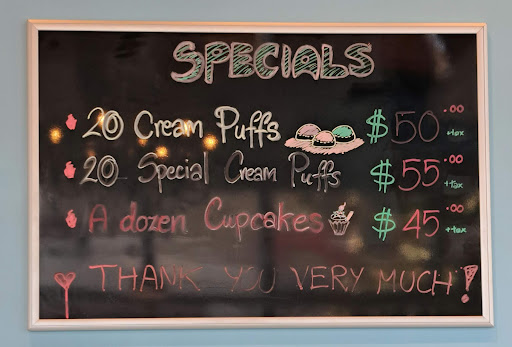 SPECIALS
20 Cream Puffs $50.00 +tax
20 Special Cream Puffs $55.00 +tax
A dozen Cupcakes $45.00 +tax
THANK YOU VERY MUCH!